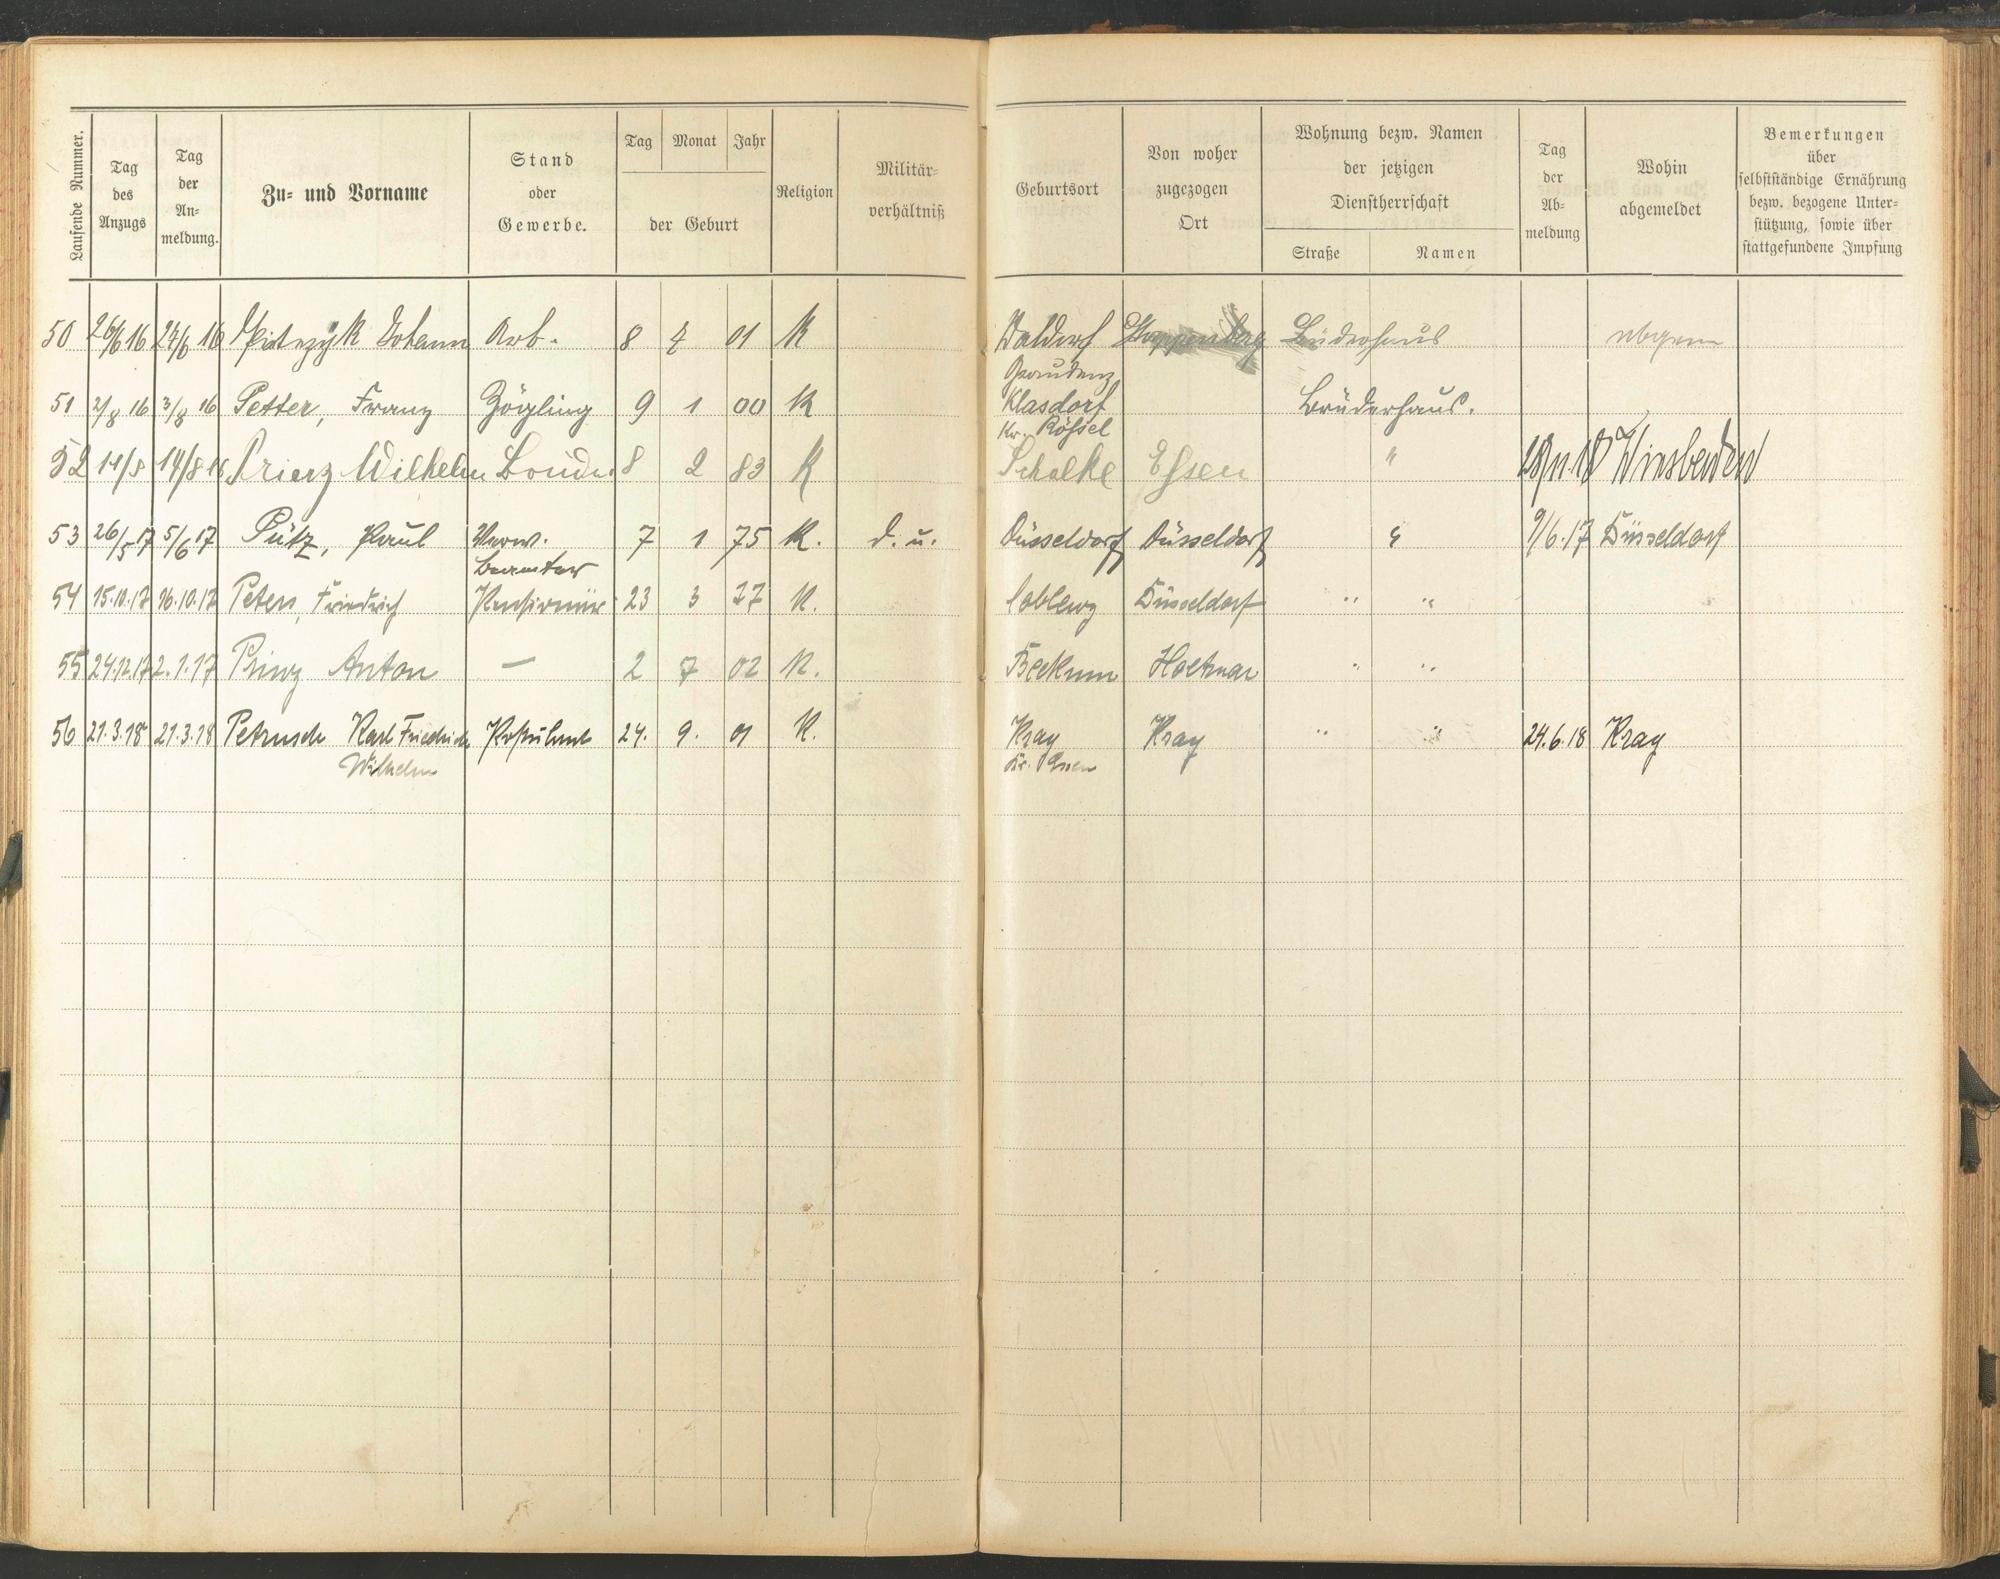 Laufende Nummer.
Tag des Anzugs
Tag der An- meldung.
Zu- und Vorname
Stand oder Gewerbe.
Tag Monat Jahr
der Geburt
Religion
Militär- verhältniß
Geburtsort
Von woher zugezogen Ort
Wohnung bezw. Namen der jetzigen Dienstherrschaft
Straße Namen
Tag der Ab- meldung
Wohin abgemeldet
Bemerkungen über selbstständige Ernährung bezw. bezogene Unter- stützung, sowie über stattgefundene Impfung
50 26/6 16 27/6 16 Johann Arb. 8 01 K Waldorf Brüderhaus
Graudenz
51 2/8 16 3/8 16 Petter, Franz Zögling 9 1 00 K Klasdorf Brüderhaus.
Kr. Rößel
52 14/8 14/8 16 Prierz Wilhelm Bruder 8 2 83 K Schalke Essen " Wiesbaden
53 26/5 17 5/6 17 Pütz, Paul Verw. 7 1 75 K. d. u. Düsseldorf Düsseldorf " 9/6.17 Düsseldorf
Beamter
54 15.10.17 16.10.17 Peters, Friedrich 23 3 27 K. Coblenz Düsseldorf " "
55 24.12.17 2.1.17 Prinz Anton — 2 7 02 K. Beckum Hoetmar " "
56 21.3.18 21.3.18 Petrusch Karl Friedrich Postulant 24. 9. 01 K. Kray Kray " " 24.6.18 Kray
Wilhelm Kr. Essen